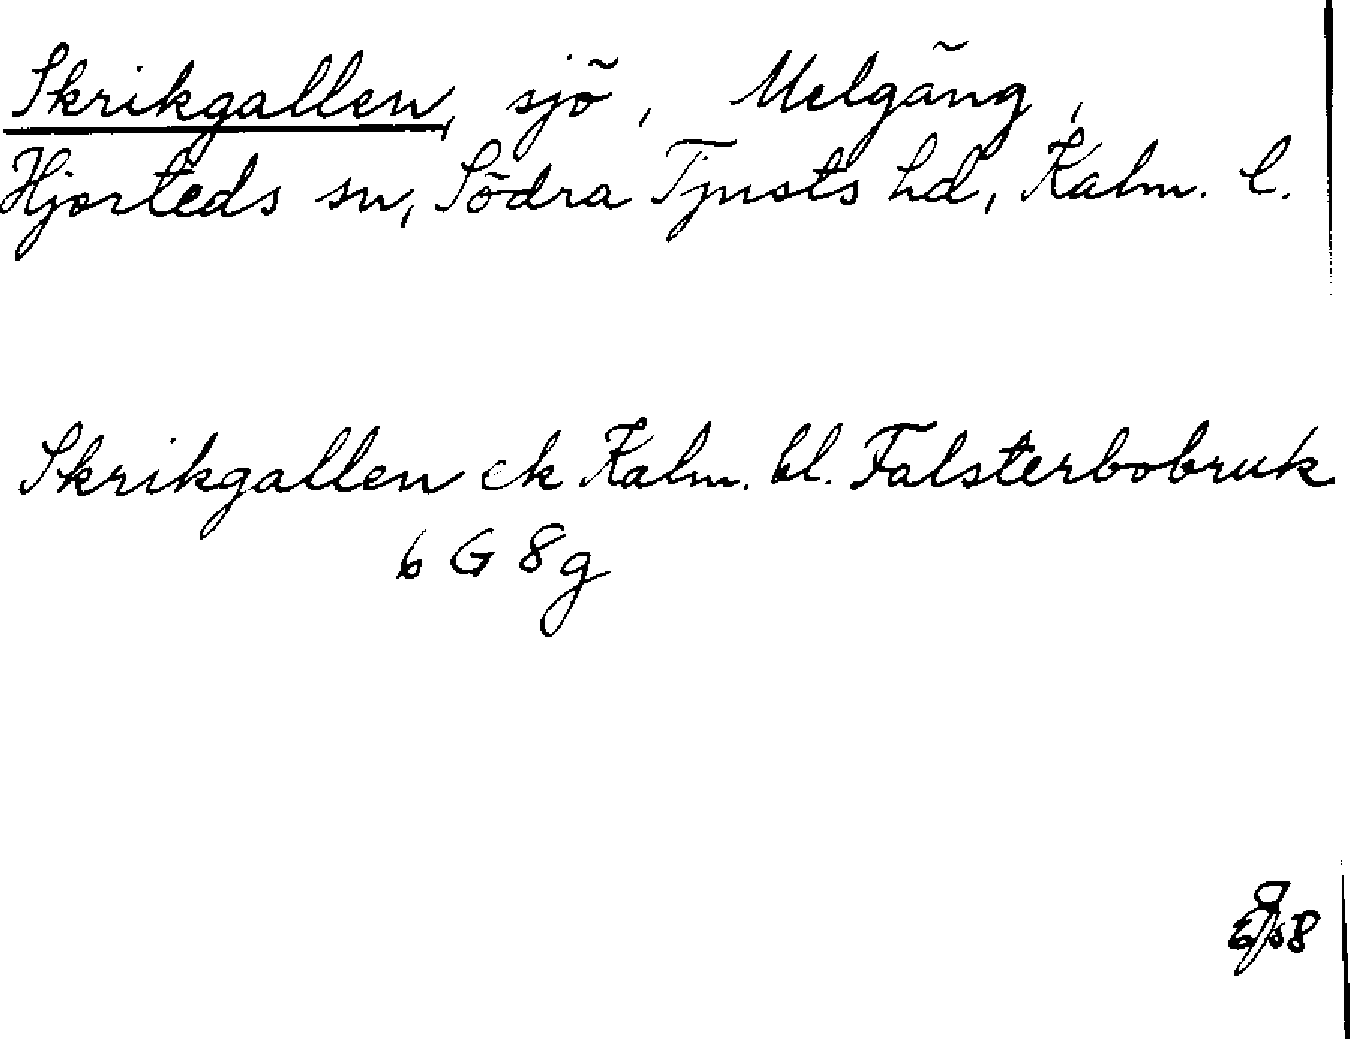 Skrikgallen, sjö, Melgäng,
Hjorteds sn, Södra Tjusts hd, Kalm. l.
Skrikgallen ek Kalm. bl. Falsterbobruk
6 G 8 g